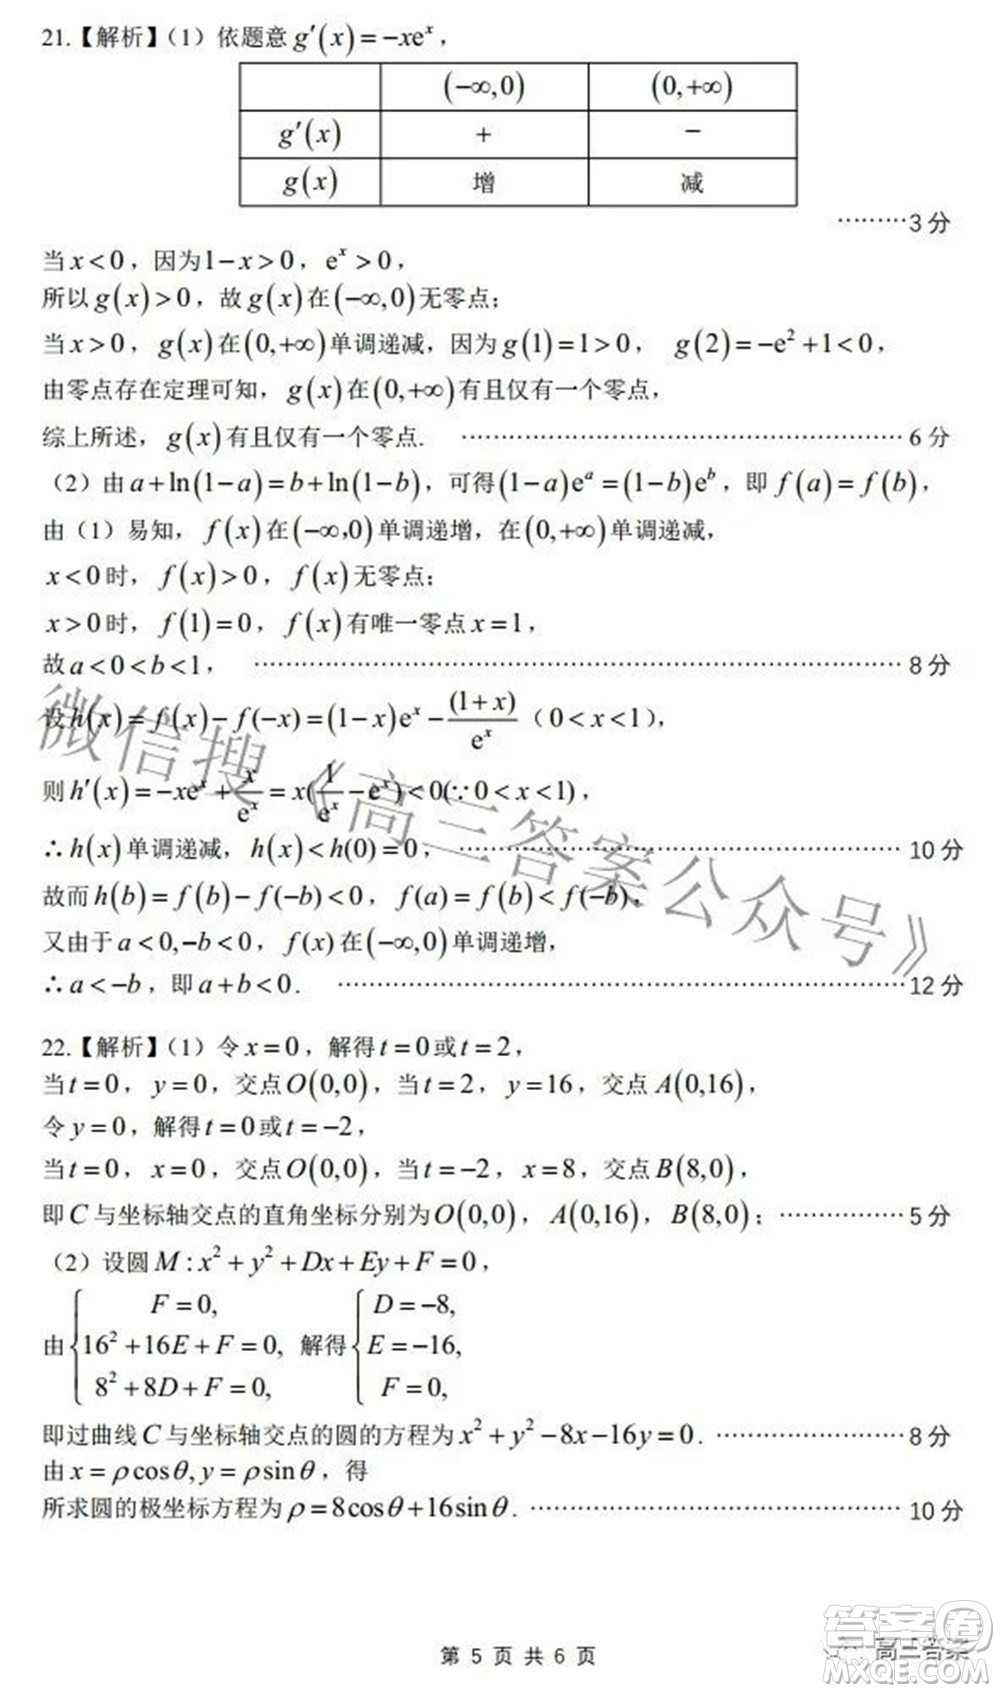 21.【解析】(1) 依题意 g′(x)=−xeˣ，
(−∞,0) (0,+∞)
g′(x) + −
g(x) 增 减
………3 分
当 x<0，因为1−x>0，eˣ>0，
所以 g(x)>0，故 g(x) 在 (−∞,0) 无零点；
当 x>0，g(x) 在 (0,+∞) 单调递减，因为 g(1)=1>0， g(2)=−e²+1<0，
由零点存在定理可知，g(x) 在 (0,+∞) 有且仅有一个零点，
综上所述，g(x) 有且仅有一个零点. ………………………………………… 6 分
(2) 由 a+ln(1−a)=b+ln(1−b)，可得 (1−a)eᵃ=(1−b)eᵇ，即 f(a)=f(b)，
由 (1) 易知，f(x) 在 (−∞,0) 单调递增，在 (0,+∞) 单调递减，
x<0 时，f(x)>0，f(x) 无零点；
x>0 时，f(1)=0，f(x) 有唯一零点 x=1，
故 a<0<b<1， ………………………………………………………… 8 分
设 h(x)=f(x)−f(−x)=(1−x)eˣ−(1+x)/eˣ (0<x<1)，
则 h′(x)=−xeˣ+x/eˣ=x(1/eˣ−eˣ)<0(∵0<x<1)，
∴h(x) 单调递减，h(x)<h(0)=0， ……………………………………… 10 分
故而 h(b)=f(b)−f(−b)<0，f(a)=f(b)<f(−b)，
又由于 a<0,−b<0，f(x) 在 (−∞,0) 单调递增，
∴a<−b，即 a+b<0． …………………………………………………… 12 分
22.【解析】(1) 令 x=0，解得 t=0 或 t=2，
当 t=0，y=0，交点 O(0,0)，当 t=2，y=16，交点 A(0,16)，
令 y=0，解得 t=0 或 t=−2，
当 t=0，x=0，交点 O(0,0)，当 t=−2，x=8，交点 B(8,0)，
即 C 与坐标轴交点的直角坐标分别为 O(0,0)，A(0,16)，B(8,0)；……………… 5 分
(2) 设圆 M:x²+y²+Dx+Ey+F=0，
由 { F=0, 16²+16E+F=0, 8²+8D+F=0, 解得 { D=−8, E=−16, F=0,
即过曲线 C 与坐标轴交点的圆的方程为 x²+y²−8x−16y=0．……………………8 分
由 x=ρcosθ,y=ρsinθ，得
所求圆的极坐标方程为 ρ=8cosθ+16sinθ．………………………………… 10 分
微信搜《高三答案公众号》
第 5 页 共 6 页
答案卷
高三答案
MXQE.COM